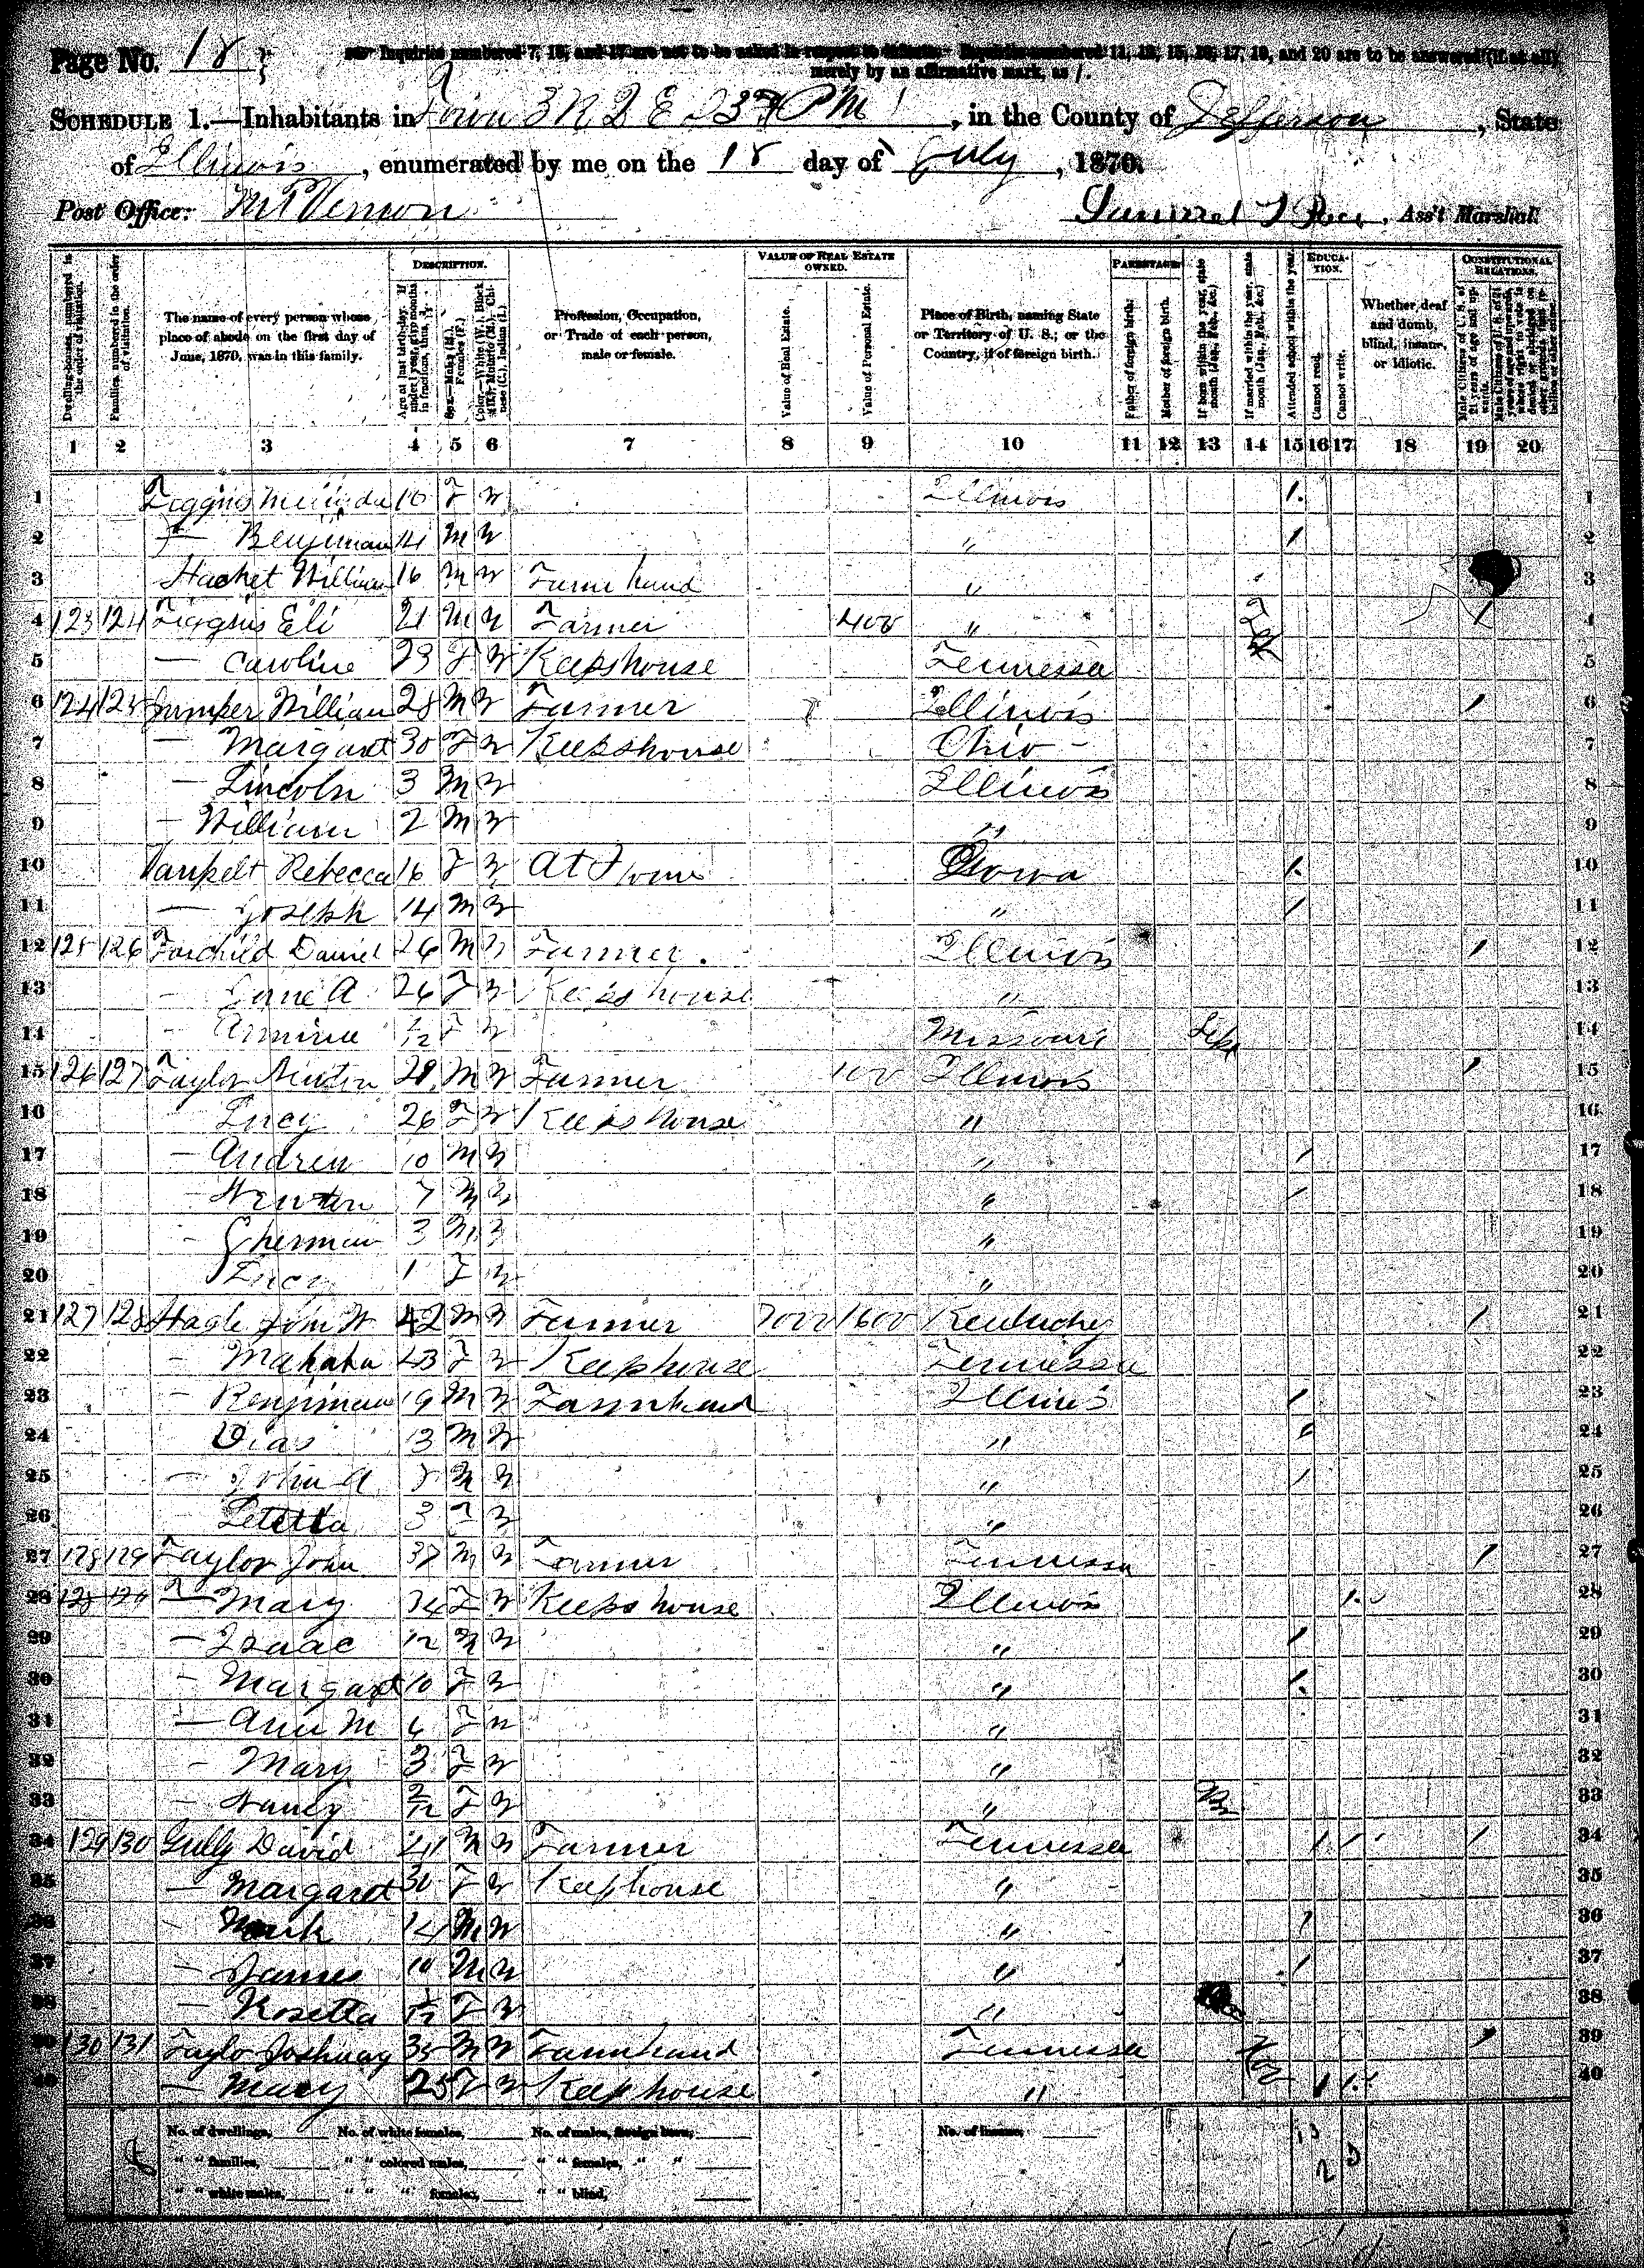 Page No. 18
Inquiries numbered 7, 16, and 17 are not to be asked in respect to infants. Inquiries numbered 11, 12, 15, 16, 17, 19, and 20 are to be answered (if at all)
merely by an affirmative mark, as /.
SCHEDULE 1.—Inhabitants in Town 3 N 2 E 3 PM, in the County of Jefferson, State
of Illinois, enumerated by me on the 18 day of July, 1870.
Post Office: Mt Vernon , Ass't Marshal.
Dwelling-houses, numbered in the order of visitation.
Families, numbered in the order of visitation.
The name of every person whose place of abode on the first day of June, 1870, was in this family.
DESCRIPTION.
Age at last birth-day. If under 1 year, give months in fractions, thus, 3/12.
Sex.—Males (M.), Females (F.)
Color.—White (W.), Black (B.), Mulatto (M.), Chinese (C.), Indian (I.)
Profession, Occupation, or Trade of each person, male or female.
VALUE OF REAL ESTATE OWNED.
Value of Real Estate.
Value of Personal Estate.
Place of Birth, naming State or Territory of U. S.; or the Country, if of foreign birth.
PARENTAGE.
Father of foreign birth.
Mother of foreign birth.
If born within the year, state month (Jan., Feb., &c.)
If married within the year, state month (Jan., Feb., &c.)
Attended school within the year.
EDUCATION.
Cannot read.
Cannot write.
Whether deaf and dumb, blind, insane, or idiotic.
CONSTITUTIONAL RELATIONS.
Male Citizens of U. S. of 21 years of age and upwards.
1 2 3 4 5 6 7 8 9 10 11 12 13 14 15 16 17 18 19 20
1 16 F W Illinois / 1
2 — Benjiman 14 M W " / 2
3 Hacket William 16 M W Farm hand " 3
4 123 124 Eli 21 M W Farmer 400 " / 4
5 — Caroline 23 F W Keepshouse Tennessee 5
6 124 125 Jumper William 28 M W Farmer Illinois / 6
7 — Margaret 30 F W Keepshouse Ohio 7
8 — Lincoln 3 M W Illinois 8
9 — William 2 M W " 9
10 Vanpelt Rebecca 16 F W At Home Iowa / 10
11 — Joseph 14 M W " / 11
12 125 126 Daniel 26 M W Farmer Illinois / 12
13 — Jane A 26 F W Keeps house " 13
14 — F W Missouri Sept 14
15 126 127 Taylor Newton M W Farmer 100 Illinois / 15
16 Lucy 26 F W Keeps house " 16
17 — Andrew 10 M W " / 17
18 — Newton 7 M W " / 18
19 — Sherman 3 M W " 19
20 Lucy 1 F W " 20
21 127 128 John W 42 M W Farmer 7000 1600 Kentucky / 21
22 — Mahala 43 F W Keep house Tennessee 22
23 — Benjiman 19 M W Farmhand Illinois / 23
24 13 M W " / 24
25 — John A M W " / 25
26 — Letetta 3 F W " 26
27 128 129 Taylor John 37 M W Farmer Tennessee / 27
28 128 129 — Mary 34 F W Keeps house Illinois / 28
29 — Isaac 12 M W " / 29
30 — Margaret 10 F W " / 30
31 — Ann M 6 F W " 31
32 — Mary 3 F W " 32
33 — Nancy 2/12 F W " 33
34 129 130 Gully David 41 M W Farmer Tennessee / / / 34
35 — Margaret 30 F W Keephouse " 35
36 — 14 M W " / 36
37 — James 10 M W " / 37
38 — Rosetta F W " 38
39 130 131 Taylo 35 M W Farmhand Tennessee / 39
40 — Mary 25 F W Keep house " / / 40
No. of dwellings, No. of white females, No. of males, foreign born, No. of insane,
" " families, " " colored males, " " females, " "
" " white males, " " " females, " " blind,